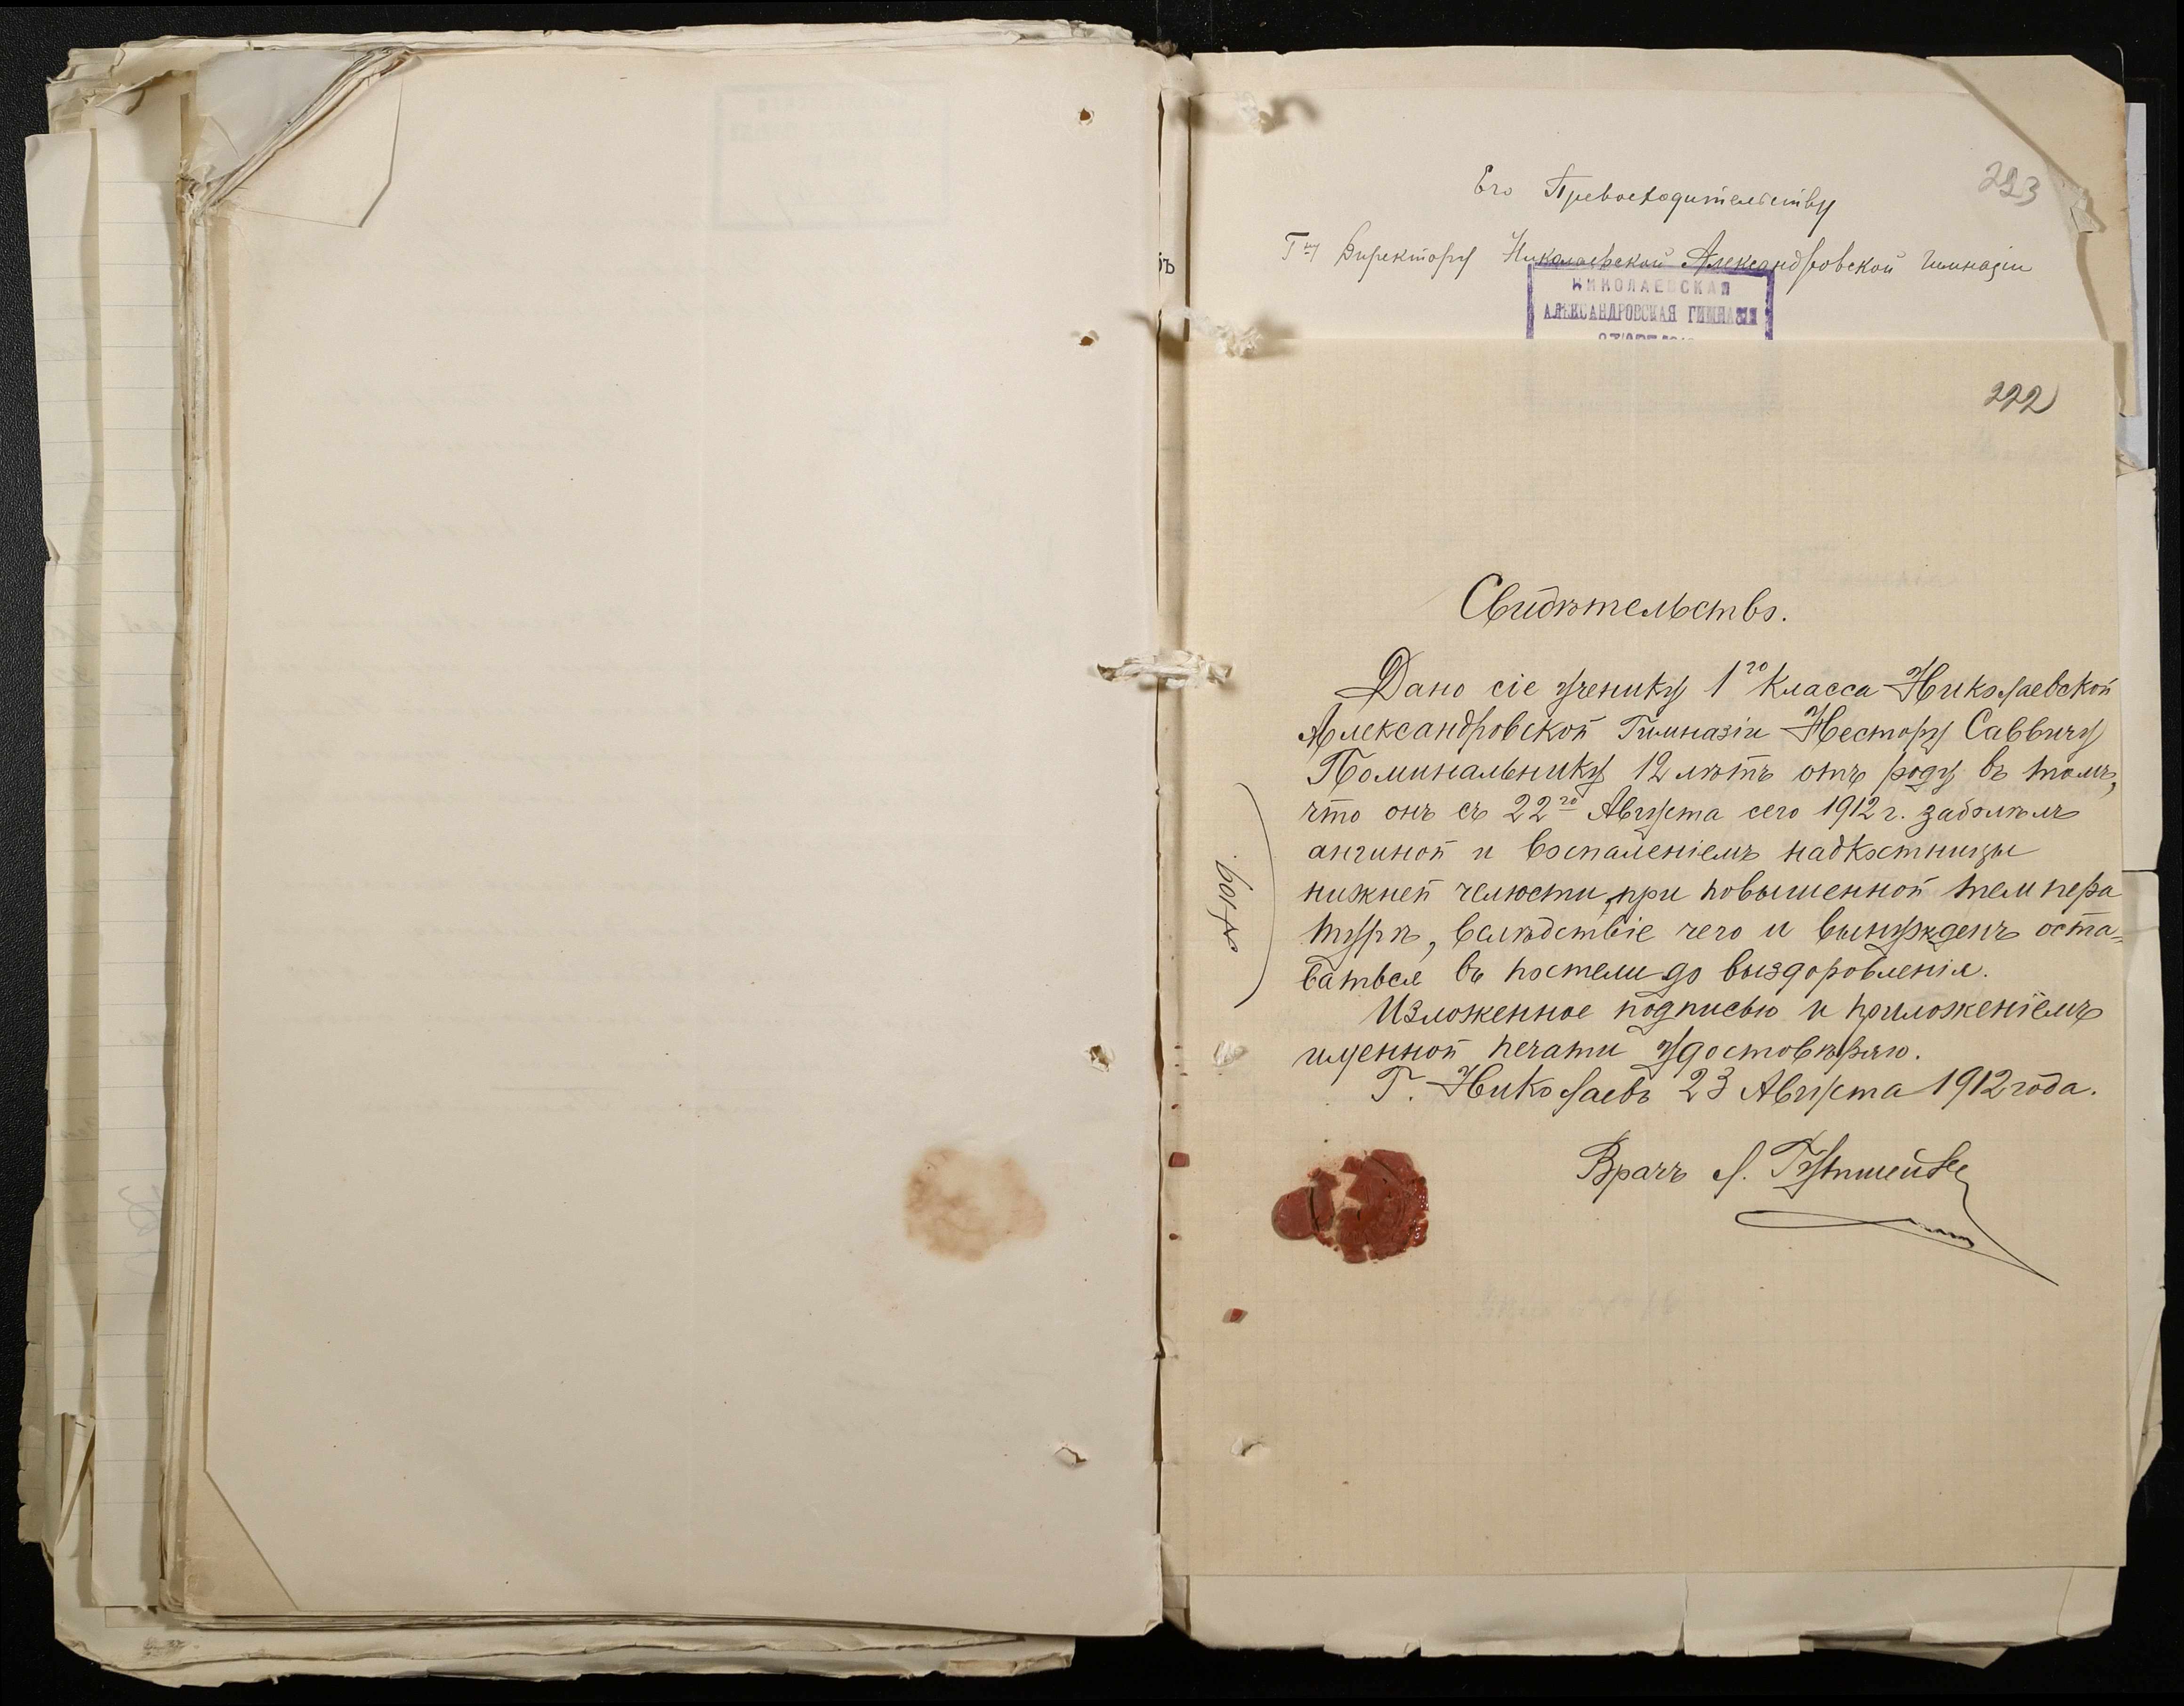 Его Превосходительству
223
Гну Директору Николаевской Александровской Гимназіи
НИКОЛАЕВСКАЯ
АЛЕКСАНДРОВСКАЯ ГИМНАЗІЯ
ъ
222
Свидѣтельство.
Дано сіе ученику 1го класса Николаевской
Александровской Гимназіи Нестору Саввичу
Поминальнику 12 лѣтъ отъ роду въ томъ,
что онъ съ 22го Августа сего 1912 г. заболѣлъ
ангиной и воспаленіемъ надкостницы
нижней челюсти, при повышенной темпера
турѣ, вслѣдствіе чего и вынужденъ оста=
ваться въ постели до выздоровленія.
Изложенное подписью и приложеніемъ
именной печати удостовѣряю.
Г. Николаевъ 23 Августа 1912 года.
Врачъ